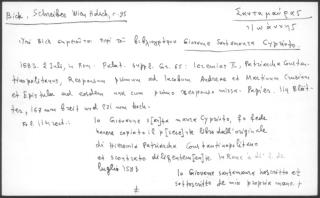 Bick, Schreiber Wien, Hdsch, S. 95
Σανταμαύρας
Ἰωάννης
Ἰσο Bick περὶ τοῦ βιβλιογράφου Giovanne Santamaura Cyprioto.
1583. 2 Juli, in Rom. Palat. suppl. Gr. 65: Ieremias II, Patriarcha Constan-
tinopolitanus, Responsum primum ad Iacobum Andreae et Martinum Crusium
et Epistula ad eosdem una cum primo responso missa. Papier. 114 Blät-
ter, 167 mm breit und 221 mm hoch.
Io Giovanne S[an]ta maura Cyprioto, fo fede
havere copiato il p[rese]nte libro dall'originale
di Hieremia Patriarcha Constantinopolitano
et scontrato diligentem[en]te. In Roma a di 2. de
luglio 1583
Io Giovanne santamaura hoscritto et
sottoscritto de mia propria mano. +